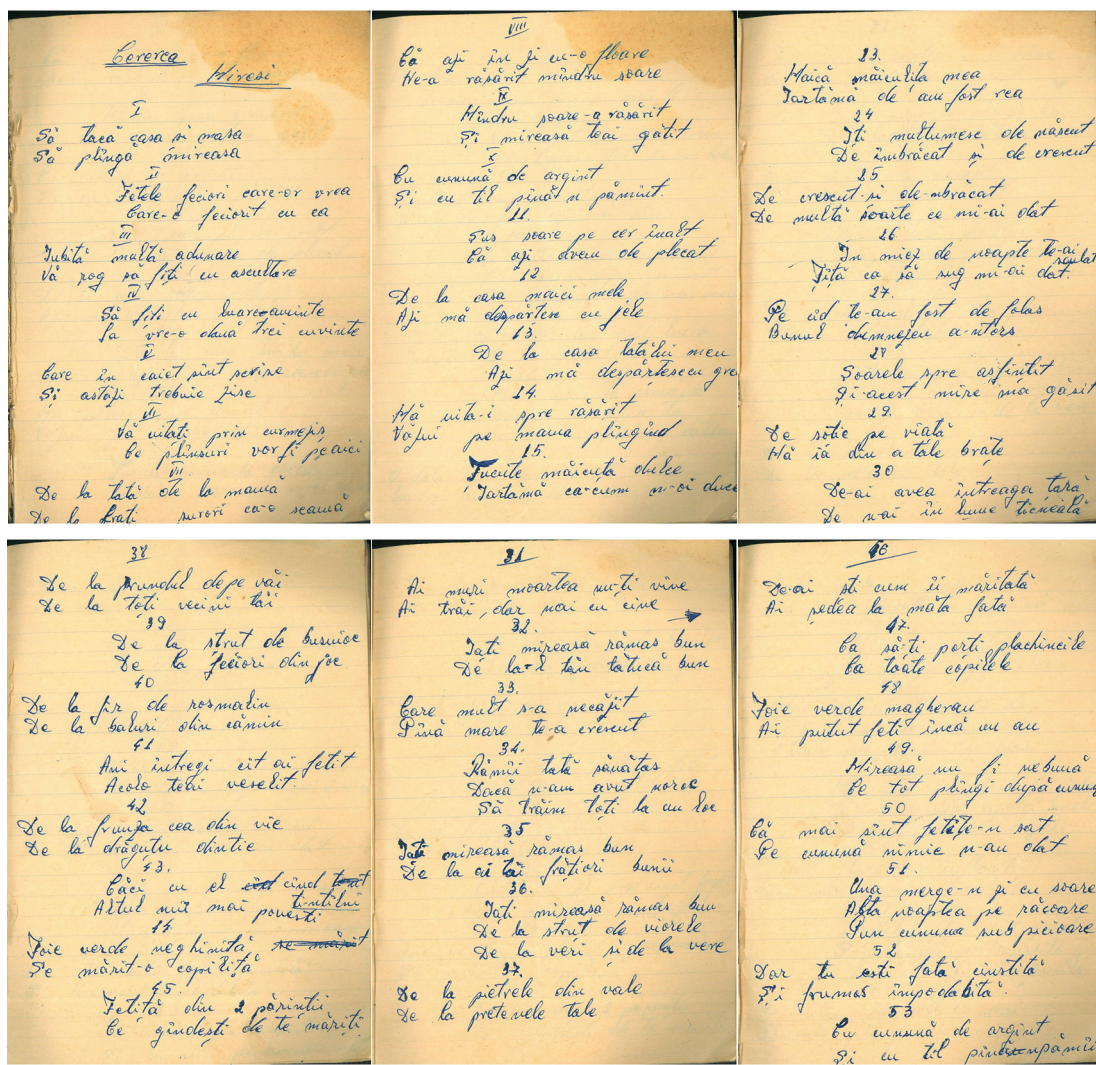 Cererea
Miresi
I
Să tacă casa si masa
Să plîngă mireasa
II
Fetele feciori care-or vrea
Care-o feciorit cu ea
III
Iubită multă adunare
Vă rog să fiți cu ascultare
IV
Să fiti cu luareaminte
La vre-o două trei cuvinte
V
Care în caiet sînt scrise
Și astăzi trebuie zise
VI
Vă uitati prin curmejis
Ce plînsuri vor fi pe aici
VII.
De la tată de la mamă
De la frati surori ca-o seamă
VIII
Că azi în zi cu-o floare
Ne-a răsărit mîndru soare
IX
Mîndru soare-a răsărit
Și mireasă teai gătit
X
Cu cunună de argint
Și cu til pînăt n pămînt.
11.
Sus soare pe cer înalt
Că azi avem de plecat
12.
De la casa maici mele
Azi mă despărtesc cu jele
13.
De la casa tatălui meu
Azi mă despărtescu greu
14.
Mă uita-i spre răsărit
Văzui pe mama plîngînd
15.
Fucute măicută dulce
Iartămă ca-cum m-oi duce
23.
Maică măiculița mea
Iartămă de am fost rea
24
Iți multumesc de născut
De îmbrăcat și de crescut
25
De crescut-si de-mbrăcat
De multă soarte ce mi-ai dat
26
In miez de noapte te-ai sculat
Tîtă ca să sug mi-ai dat.
27.
Pe cîd te-am fost de folos
Bunul dumnezeu a-ntors
28
Soarele spre asfintit
Și-acest mire ma găsit
29.
De sotie pe viată
Mă ia din a tale brațe
30
De-ai avea întreaga tară
De n-ai în lume ticneală
38
De la prundul depe văi
De la toti vecini tăi
39
De la strut de busuioc
De la feciori din joc
40
De la fir de rosmalin
De la baluri din cămin
41
Ani întregi cit ai fetit
Acolo teai veselit.
42
De la frunza cea din vie
De la drăgutu dintie
43.
Căci cu el cînd
ti-ntilni
Altul nii mai povesti
44
Foie verde neghinită
Se mărit-o copiliță
45.
Fetită din 2 părintii
Ce gîndești de te măriți
31
Ai muri moartea nu-ti vine
Ai trăi, dar nai cu cine
32.
Iați mireasă rămas bun
De la-l tău tătucă bun
33.
Care mult s-a necăjit
Pînă mare te-a crescut
34.
Rămîi tată sănătos
Dacă n-am avut noroc
Să trăim toți la un loc
35
Iați mireasă rămas bun
De la ai tăi frățiori bunii
36.
Iați mireasă rămas bun
De la strut de viorele
De la veri și de la vere
37.
De la pietrele din vale
De la pretenele tale
46
De-ai sti cum îi măritată
Ai ședea la măta fată
47.
Ca să-ti porti plachincile
Ca toate copilele
48
Foie verde magheran
Ai putut feti încă un an
49.
Mireasă nu fi nebună
Ce tot plîngi după cunun
50
Că mai sînt fetițe-n sat
Pe cunună nimic n-au dat
51.
Una merge-n zi cu soare
Alta noaptea pe răcoare
Pun cununa sub picioare
52
Dar tu esti fată cinstită
Și frumos împodobită.
53
Cu cunună de argint
Și cu til